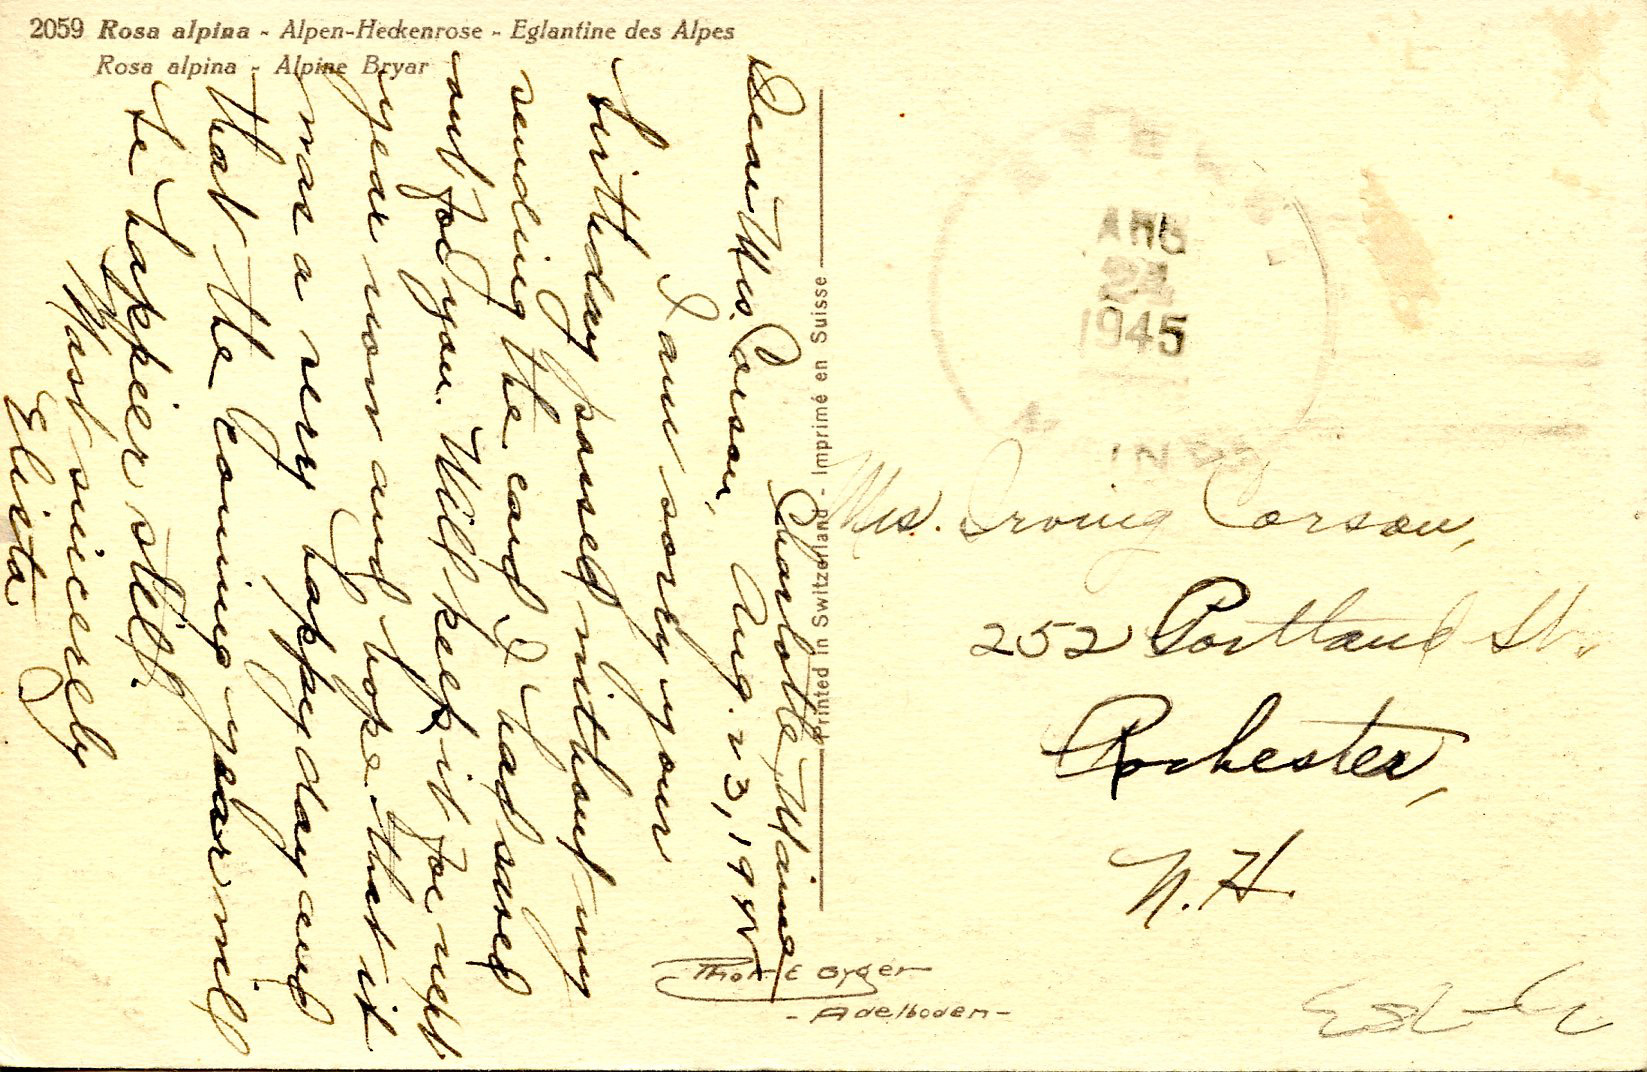 2059 Rosa alpina - Alpen-Heckenrose - Eglantine des Alpes
Rosa alpina - Alpine Bryar
Charlotte, Maine
Aug. 23, 1945
Dear Mrs. Corson,
I am sorry your
birthday passed without my
sending the card I had saved
out for you. Will keep it for next
year now and hope that it
was a very happy day and
that the coming year will
be happier still.
Most sincerely
Elieta
Printed in Switzerland - Imprimé en Suisse
AUG
24
1945
Mrs. Irving Corson,
252 Portland St.,
Rochester,
N.H.
Thor E Gyger
- Adelboden -